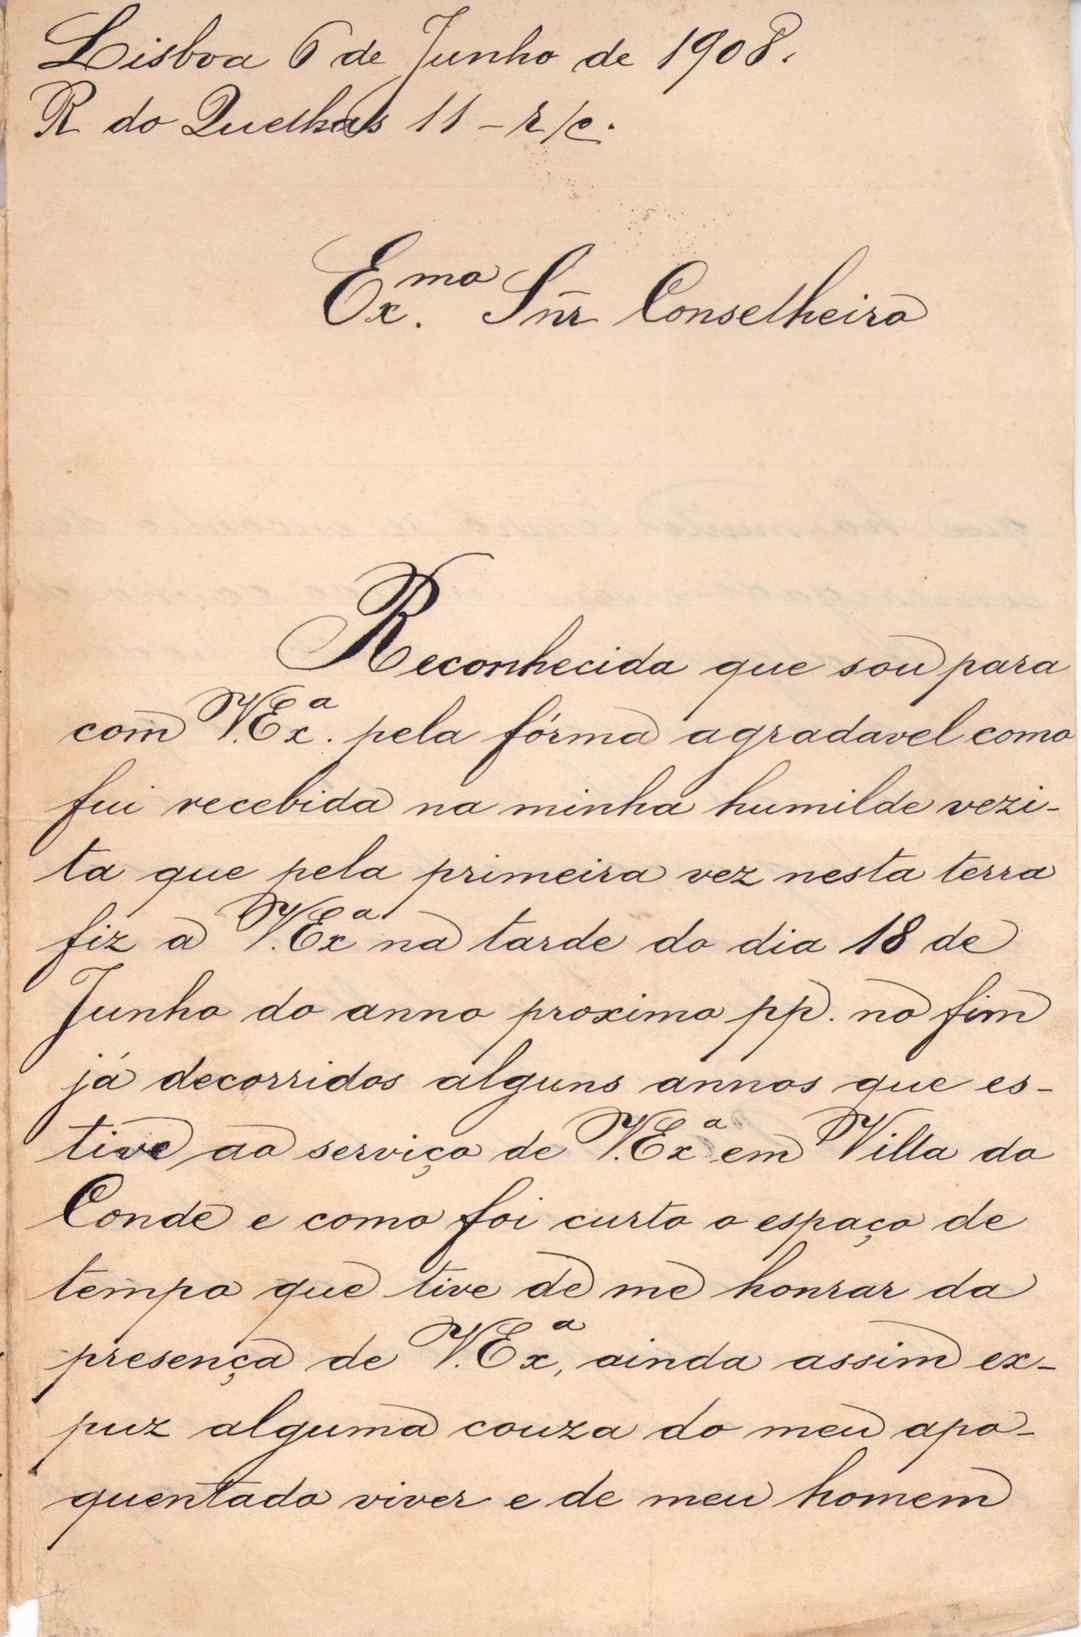 Lisboa 6 de Junho de 1908.
R do Quelhas 11 - r/c.
Ex.mo Snr Conselheiro
Reconhecida que sou para
com V.Ex.a pela fórma agradavel como
fui recebida na minha humilde vezi-
ta que pela primeira vez nesta terra
fiz a V.Exa na tarde do dia 18 de
Junho do anno proximo pp. no fim
já decorridos alguns annos que es-
tive ao serviço de V.Exa em Villa do
Conde e como foi curto o espaço de
tempo que tive de me honrar da
presença de V.Exa, ainda assim ex-
puz alguma couza do meu apo-
quentado viver e de meu homem